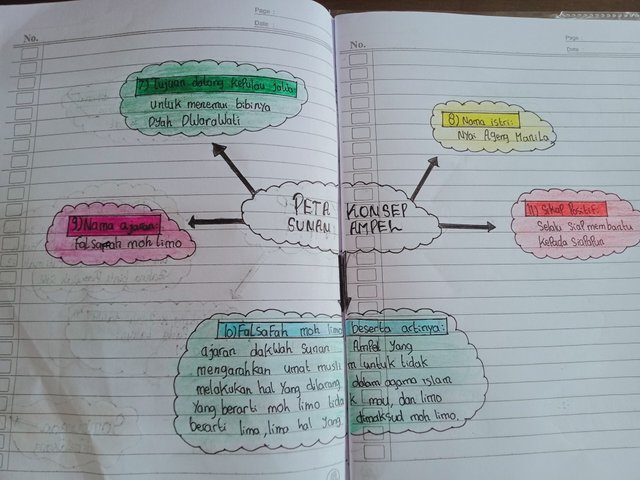 Page :
Date :
No.
No.
Page
Date
7) Tujuan datang kepulau Jawa
untuk menemui bibinya
Dyah Dwarawati
8) Nama istri:
Nyai Ageng Manila
PETA KONSEP
SUNAN AMPEL
9) Nama ajaran:
Falsafah moh limo
11) Sikap Positif:
Selalu siap membantu
kepada siapapun
10) Falsafah moh limo beserta artinya:
ajaran dakwah Sunan Ampel yang
mengarahkan umat muslim untuk tidak
melakukan hal yang dilarang dalam agama islam
yang berarti moh limo tidak mau, dan limo
berarti lima, limo hal yang dimaksud moh limo.